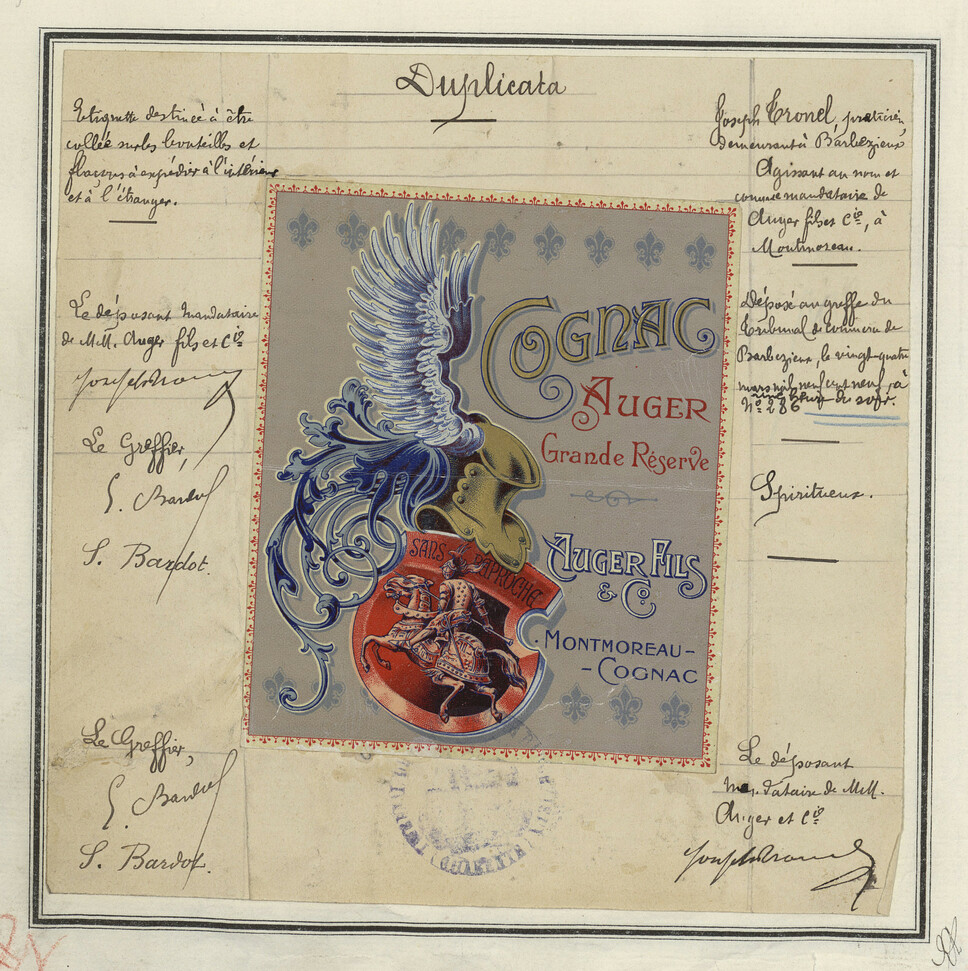 Duplicata
Etiquette destinée à être
collée sur les bouteilles et
flacons à expédier à l'intérieur
et à l'étranger.
Le déposant mandataire
de M.M. Auger fils et Cie
Le Greffier,
S. Bardot
S. Bardot.
Le Greffier,
S. Bardot
S. Bardot.
COGNAC
AUGER
Grande Réserve
AUGER FILS
& Co
MONTMOREAU-
-COGNAC
SANS RAPROCHE
Joseph Tronel, praticien
demeurant à Barbezieux
Agissant au nom et
comme mandataire de
Auger fils et Cie, à
Montmoreau.
Déposé au greffe du
Tribunal de Commerce de
Barbezieux, le vingt-quatre
mars mil neuf cent neuf, à
une heure du soir.
No 286
Spiritueux.
Le déposant
mandataire de M.M.
Auger et Cie